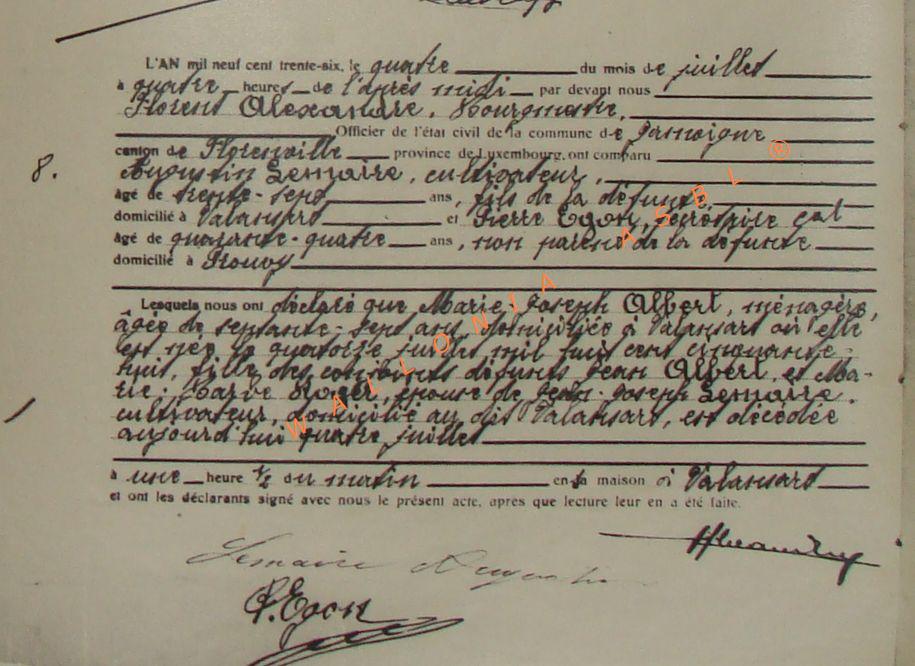 L'AN mil neuf cent trente-six, le quatre du mois de juillet
à quatre heures de l'après midi par devant nous
Florent Alexandre, Bourgmestre,
Officier de l'état civil de la commune de Jamoigne
canton de Florenville province de Luxembourg, ont comparu
8.
Augustin Lemaire, cultivateur,
âgé de trente-sept ans, fils de la défunte,
domicilié à Valansart et Pierre Egon, secrétaire cal
âgé de quarante-quatre ans, non parent de la défunte
domicilié à Prouvy
Lesquels nous ont déclaré que Marie-Joseph Albert, ménagère,
âgée de septante-sept ans domiciliée à Valansart où elle
est née le quatorze juillet mil huit cent cinquante-
huit, fille des conjoints défunts Jean Albert, et Ma-
rie-Barbe Roger, épouse de Jean-Joseph Lemaire,
cultivateur, domicilié au dit Valansart, est décédée
aujourd'hui quatre juillet
à une heure ½ du matin en sa maison à Valansart
et ont les déclarants signé avec nous le présent acte, après que lecture leur en a été faite.
Lemaire Augustin
P. Egon
WALLONIA ASBL ©